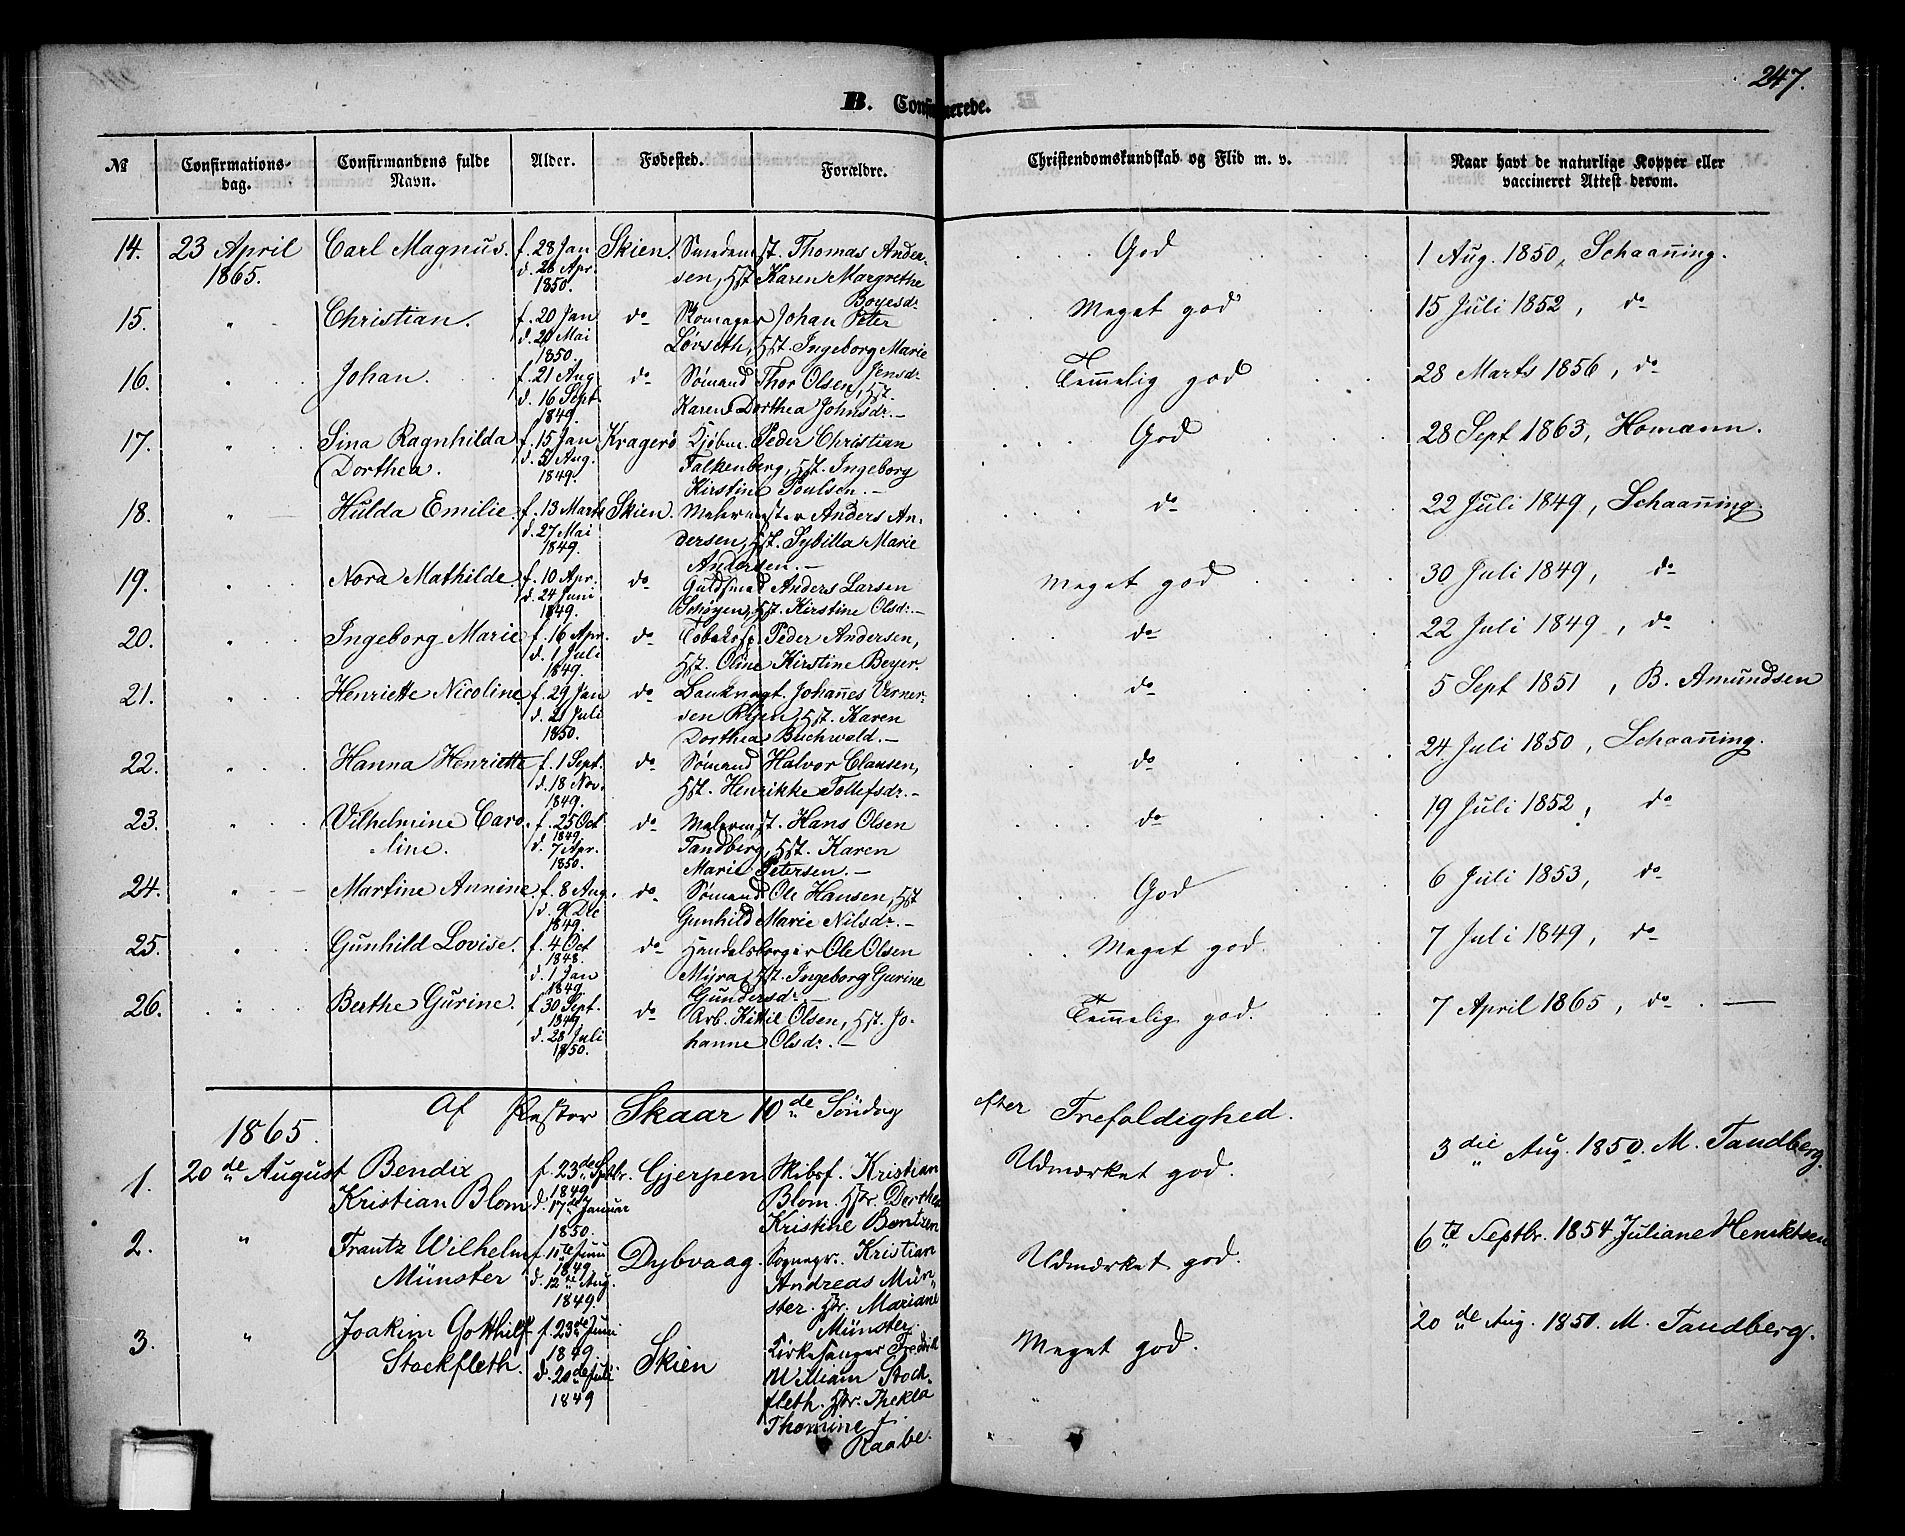 247.
B. Confirmerede.
№ Confirmations- dag. Confirmandens fulde Navn. Alder. Fødested. Forældre. Christendomskundskab og Flid m. v. Naar havt de naturlige Kopper eller vaccineret Attest derom.
14. 23 April Carl Magnus. f. 28 Jan Skien. Smedemst. Thomas Ander- God 1 Aug. 1850, Schaanning.
1865. d. 28 Apr. sen, Hst. Karen Margrethe
1850. Boyesdr.
15. " Christian. f. 20 Jan do Skomager Johan Peter Meget god 15 Juli 1852, do
d. 20 Mai Løvseth, Hst. Ingeborg Marie
1850. Jensdr.
16. " Johan. f. 21 Aug do Sømand Thor Olsen, Hst. Temmelig god 28 Marts 1856, do
d. 16 Sept. Karen Dorthea Johnsdr. -
1849.
17. " Sina Ragnhilda f. 15 Jan Kragerø Kjøbm. Peder Christian God 28 Sept 1863, Homann.
Dorthea. d. 5 Aug. Falkenberg, Hst. Ingeborg
1849. Kirstine Poulsen. -
18. " Hulda Emilie f. 13 Marts Skien. Malermester Anders An- do 22 Juli 1849, Schaanning
d. 27 Mai dersen, Hst. Sybilla Marie
1849. Andersen. -
19. " Nora Mathilde. f. 10 Apr. do Guldsmed Anders Larsen Meget god 30 Juli 1849, do
d. 24 Juni Schøyen, Hst. Kirstine Olsdr. -
1849.
20. " Ingeborg Marie f. 16 Apr. do Peder Andersen, do 22 Juli 1849, do
d. 1 Juli Hst. Oline Kirstine Beyer.
1849.
21. " Henriette Nicoline f. 29 Jan do Bankvagt. Johannes Verner- do 5 Sept 1851, B. Amundsen
d. 21 Juli sen Hst. Karen
1850. Dorthea Buchwald. -
22. " Hanna Henriette f. 1 Sept. do Sømand Halvor Clausen, do 24 Juli 1850, Schaanning.
d. 18 Nov. Hst. Henrikke Tollefsdr. -
1849.
23. " Vilhelmine Caro- f. 25 Oct do Malermst. Hans Olsen do 19 Juli 1852, do
line. 1849. Tandberg, Hst. Karen
d. 7 Apr. Marie Petersen. -
1850.
24. " Martine Annine f. 8 Aug. do Sømand Ole Hansen, Hst God 6 Juli 1853, do
d. 9 Dec Gunhild Marie Nilsdr. -
1849.
25. " Gunhild Lovise. f. 4 Oct do Handelsborger Ole Olsen Meget god. 7 Juli 1849, do
1848. Myra, Hst. Ingeborg Gurine
d. 1 Jan Gundersdr. -
1849.
26. " Berthe Gurine. f. 30 Sept. do Arb. Kittil Olsen, Hst. Jo- Temmelig god. 7 April 1865, do -
1849 hanne Olsdr. -
d. 28 Juli
1850.
Af Pastor Skaar 10de Söndag efter Trefoldighed.
1865.
1. 20de August Bendix f. 23de Sptbr. Gjerpen Skibsf. Kristian Udmærket god. 3die Aug. 1850. M. Tandberg.
Kristian Blom 1849 Blom. Hstr. Dorthea
d. 17de Januar Kristine Bentzen
1850.
2. " Frantz Wilhelm f. 11te Juni Dybvaag. Sognepr. Kristian Udmærket god. 6te Septbr. 1854 Juliane Henriktsen
Münster 1849 Andreas Mün-
d. 12te Aug. ster. Hstr. Mariane
1849. Münster.
3. " Joakim Gotthilf f. 23de Juni Skien Kirkesanger Fredrik Meget god. 20de Aug. 1850. M. Tandberg.
Stockfleth. 1849. William Stock-
d. 20de Juli fleth. Hstr. Thekla
1849 Thomine f.
Raabe.